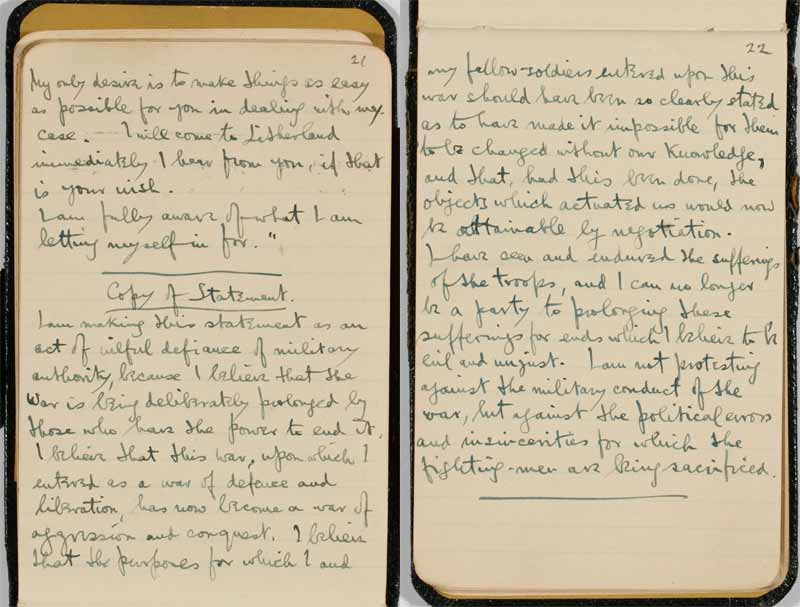 21
My only desire is to make things as easy
as possible for you in dealing with my
case. — I will come to Litherland
immediately I hear from you, if that
is your wish.
I am fully aware of what I am
letting myself in for."
Copy of Statement.
I am making this statement as an
act of wilful defiance of military
authority, because I believe that the
war is being deliberately prolonged by
those who have the power to end it.
I believe that this war, upon which I
entered as a war of defence and
liberation, has now become a war of
aggression and conquest. I believe
that the purposes for which I and
22
my fellow-soldiers entered upon this
war should have been so clearly stated
as to have made it impossible for them
to be changed without our knowledge,
and that, had this been done, the
objects which actuated us would now
be attainable by negotiation.
I have seen and endured the sufferings
of the troops, and I can no longer
be a party to prolonging these
sufferings for ends which I believe to be
evil and unjust. I am not protesting
against the military conduct of the
war, but against the political errors
and insincerities for which the
fighting-men are being sacrificed.